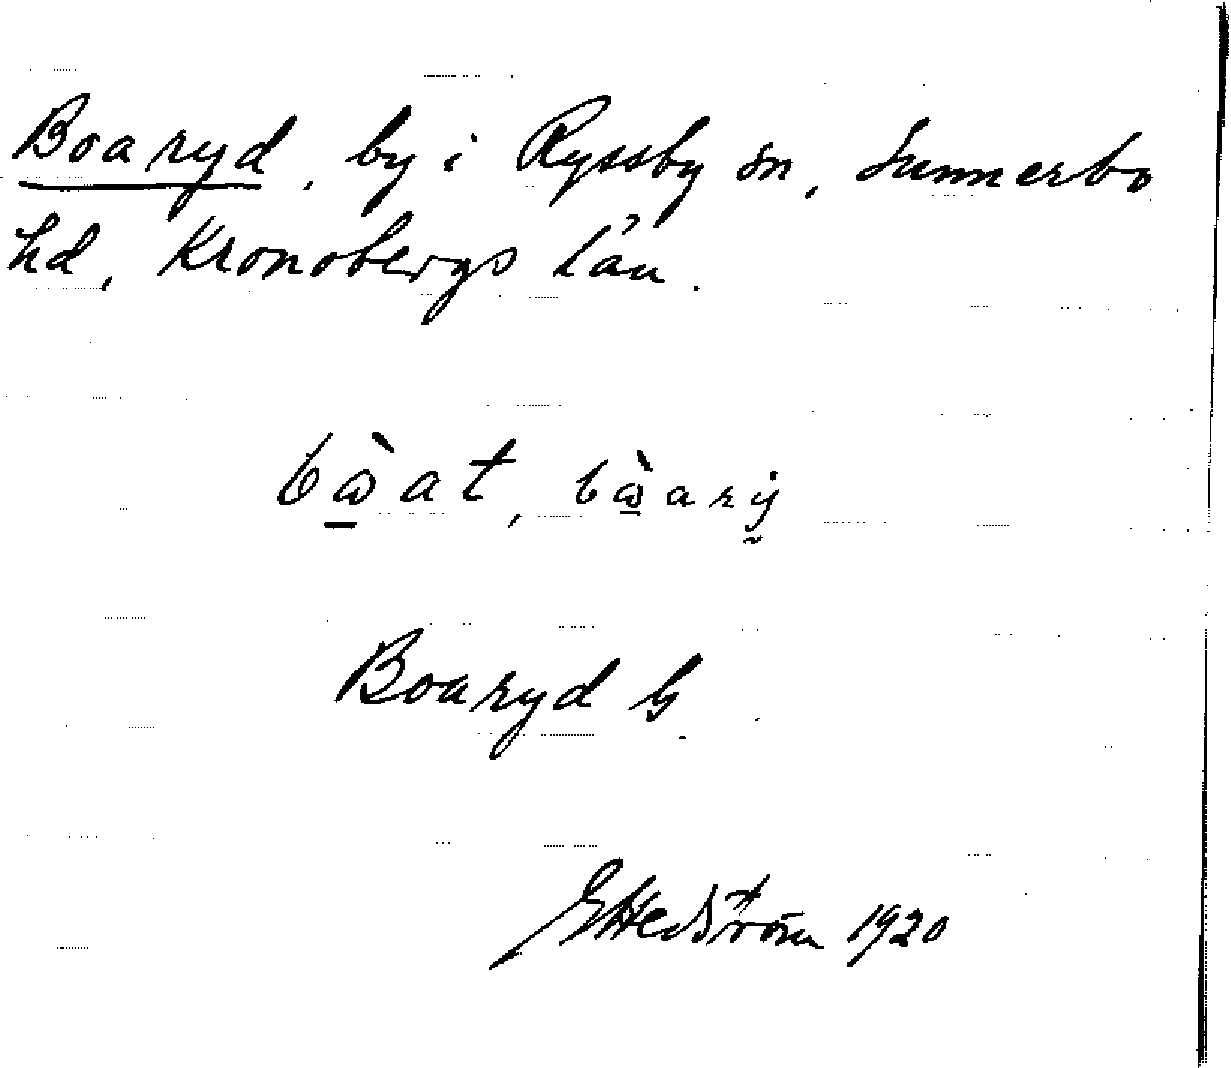 Boaryd, by i Ryssby sn, Sunnerbo
hd, Kronobergs län.
bὼ̠at, bὼ̠arẙ
Boaryd by
G Hedström 1920